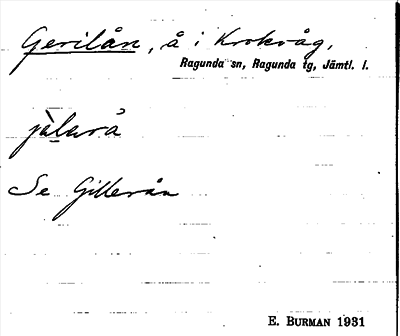 Gerilån, å i Krokvåg,
Ragunda sn, Ragunda tg, Jämtl. l.
Se Gillerån
E. BURMAN 1931